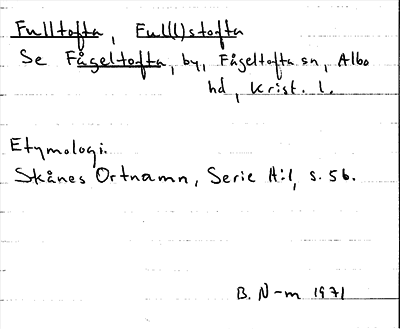 Fulltofta, Ful(l)stofta
Se Fågeltofta, by, Fågeltofta sn, Albo
hd, Krist. l.
Etymologi.
Skånes Ortnamn, Serie A:1, s. 56.
B. N-m 1971